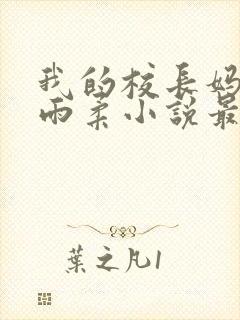 我的校長媽
雨柔小說最
葉之凡1